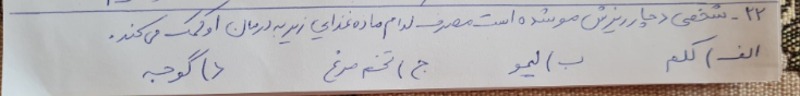 ۲۲ - شخصی دچار ریزش مو شده است مصرف کدام ماده غذایی زیر به درمان او کمک می کند.
الف) کلم ب) لیمو ج) تخم مرغ د) گوجه